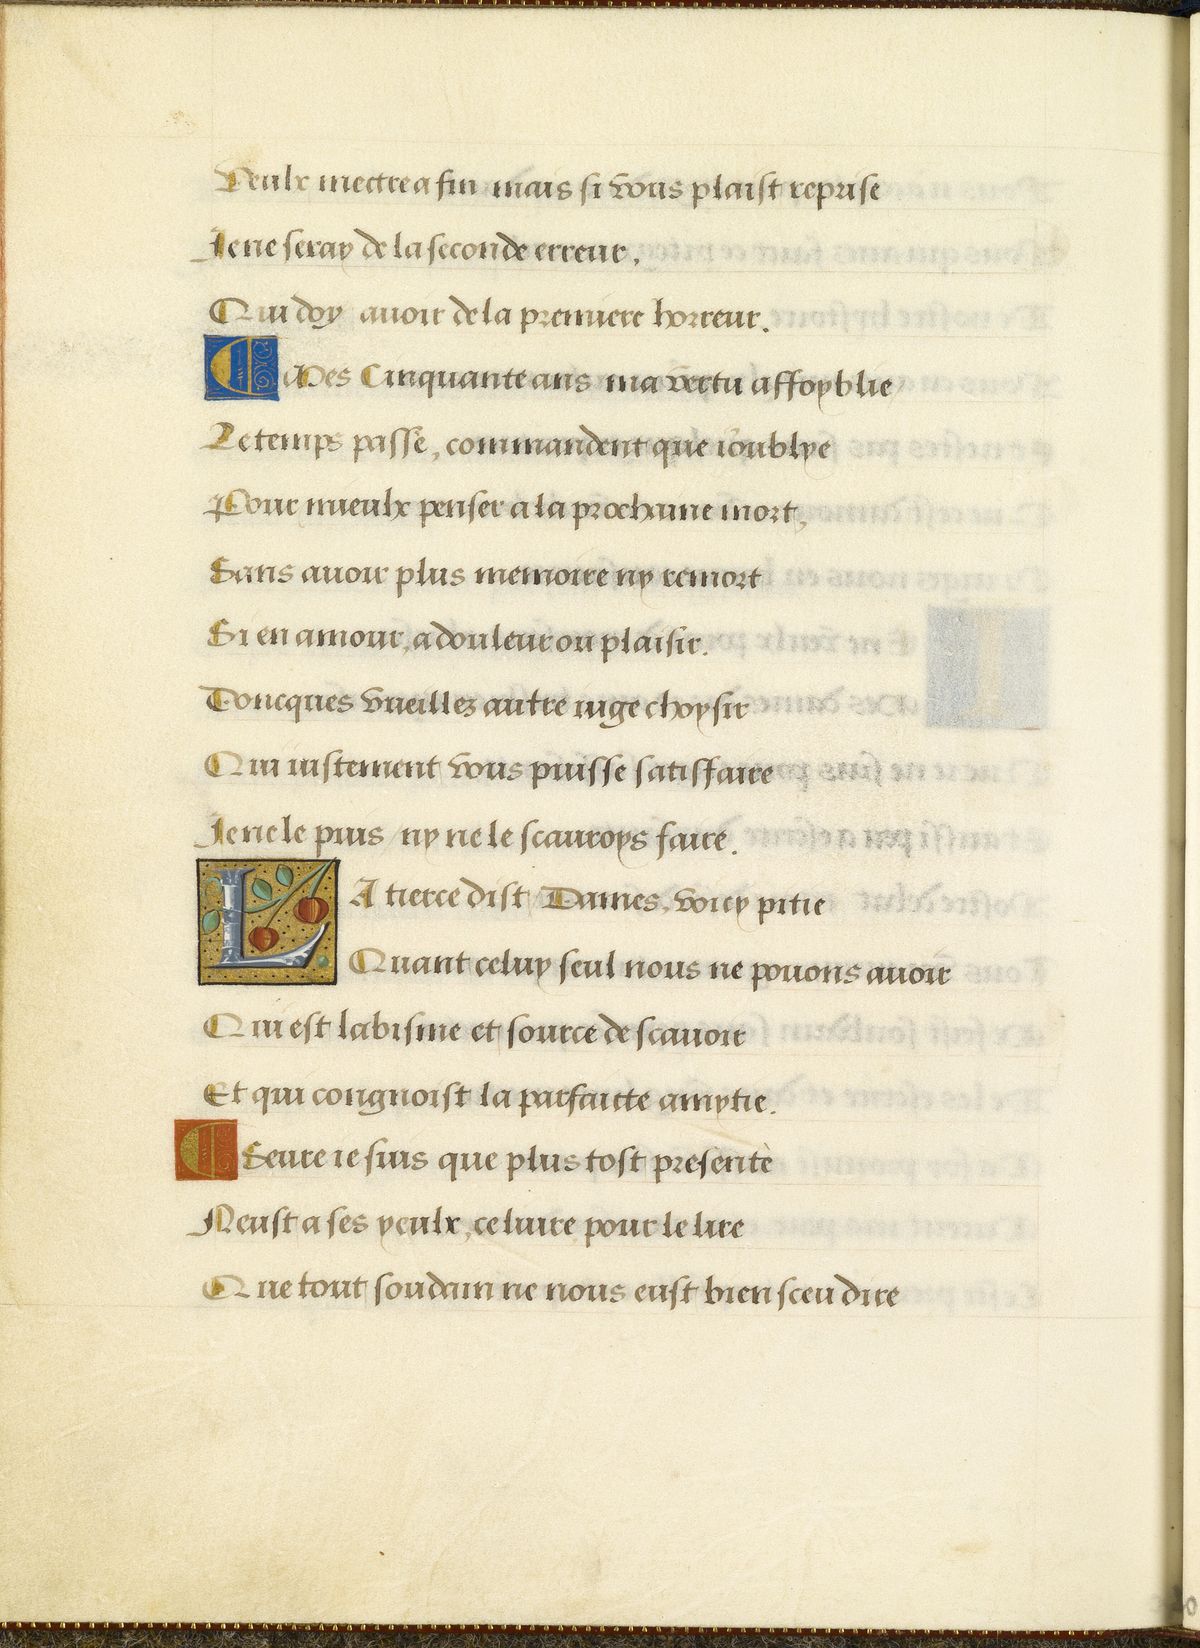 Veulx mettre a fin mais si vous plaist reprise
Ie ne seray de la seconde erreur,
Qui doy avoir de la premiere horreur.
Mes Cinquante ans ma vertu affoyblie
Le temps passe, commandent que ioublye
Pour mieulx penser a la prochaine mort,
Sans avoir plus memoire ny remort
Si en amour, a douleur ou plaisir.
Doncques vueillez autre iuge choysir
Qui iustement vous puisse satisfaire
Ie ne le puis ny ne le scauroys faire.
LA tierce dist Dames, voicy pitie
Quant celuy seul nous ne povons avoir
Qui est labisme et source de scavoir
Et qui congnoist la parfaicte amytie.
Seure ie suis que plus tost presente
Neust a ses yeulx, ce luire pour le lire
Que tout soudain ne nous eust bien sceu dire